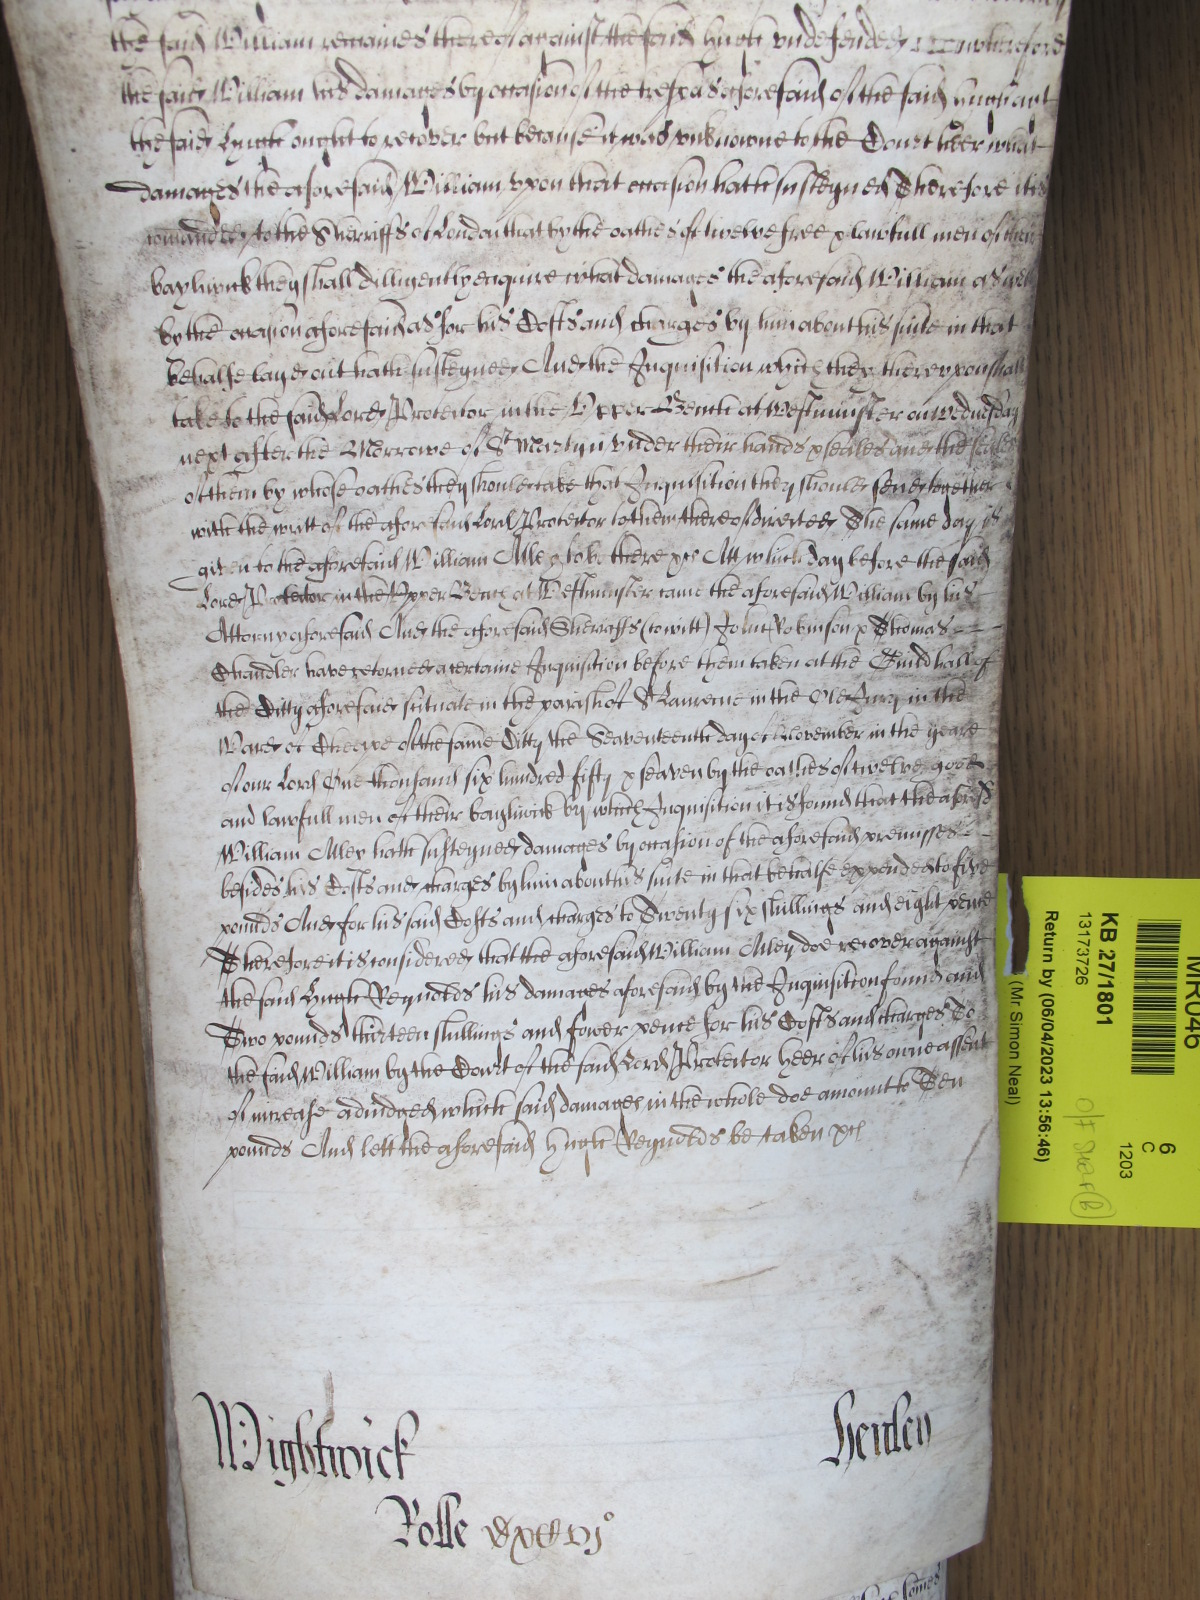 the said William remaines thereof against the said Hugh undefended wherefore
the said William his damages by occasion of the trespas aforesaid of the said Hugh
the said Hugh ought to recover but because it was unknowne to the Court heer what
damages the aforesaid William uppon that occasion hath susteyned Therefore it is
comanded to the Sherriffs of London that by the oathes of twelve free & lawfull men of their
bayliwick they shall dilligently enquire what damages the aforesaid William as well
by the occasion aforesaid as for his Costs and charges by him about his suite in that
behalfe layd out hath susteyned And the Inquisition which they thereuppon shall
take to the said Lord Protector in the Upper Bench at Westminster on Wednesday
next after the Morrowe of St Martyn under their hands & seales and the seales
of them by whose oathes they should take that Inquisition they should send together
with the writt of the aforesaid Lord Protector to them thereof directed The same day is
given to the aforesaid William Alley to be there &c Att which day before the said
Lord Protector in the Upper Bench at Westminster came the aforesaid William by his
Attorny aforesaid And the aforesaid Sherriffs (to witt) John Robinson & Thomas
Chandler have retorned a certaine Inquisition before them taken at the Guildhall of
the Citty aforesaid scituate in the parish of St Laurence in the Old Jury in the
Ward of Cheepe of the same Citty the Seaventeenth day of November in the yeare
of our Lord One thousand six hundred fifty & seaven by the oathes of twelve good
and lawfull men of their bayliwick by which Inquisition it is found that the aforesd
William Alley hath susteyned damages by occasion of the aforesaid premisses
besides his Costs and charges by him about his suite in that behalfe expended to five
pounds And for his said Costs and charges to Twenty six shillings and eight pence
Therefore it is considered that the aforesaid William Alley doe recover against
the said Hugh Reynolds his damages aforesaid by the Inquisition found and
Two pounds thirteen shillings and fower pence for his Costs and charges To
the said William by the Court of the said Lord Protector heer of his owne assent
of increase adiudged which said damages in the whole doe amount to Ten
pounds And lett the aforesaid Hugh Reynolds be taken &c
Wightwick
Henley
Rolle
MR046
KB 27/1801
13173726
Return by (06/04/2023 13:56:46)
(Mr Simon Neal)
6
C
1203